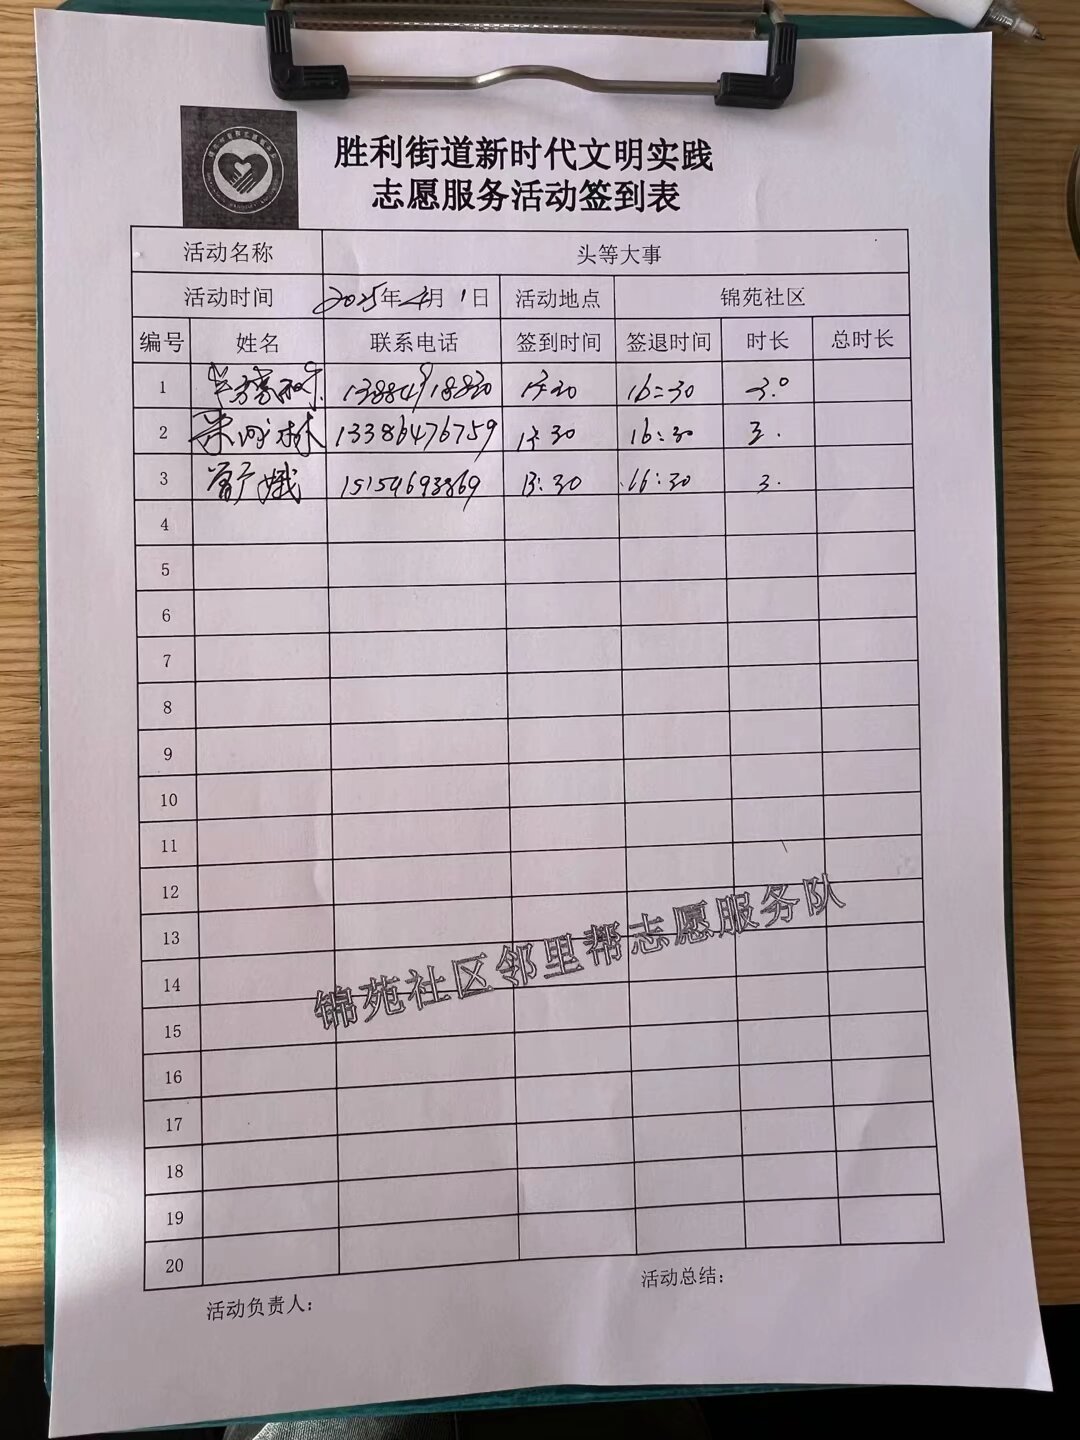 胜利街道新时代文明实践
志愿服务活动签到表
活动名称 头等大事
活动时间 2025年4月1日 活动地点 锦苑社区
编号 姓名 联系电话 签到时间 签退时间 时长 总时长
1 13884918820 13:30 16:30 3.0
2 13386476759 13:30 16:30 3.
3 15154693869 13:30 16:30 3.
4
5
6
7
8
9
10
11
12
13
14
15
16
17
18
19
20
锦苑社区邻里帮志愿服务队
活动负责人：
活动总结：